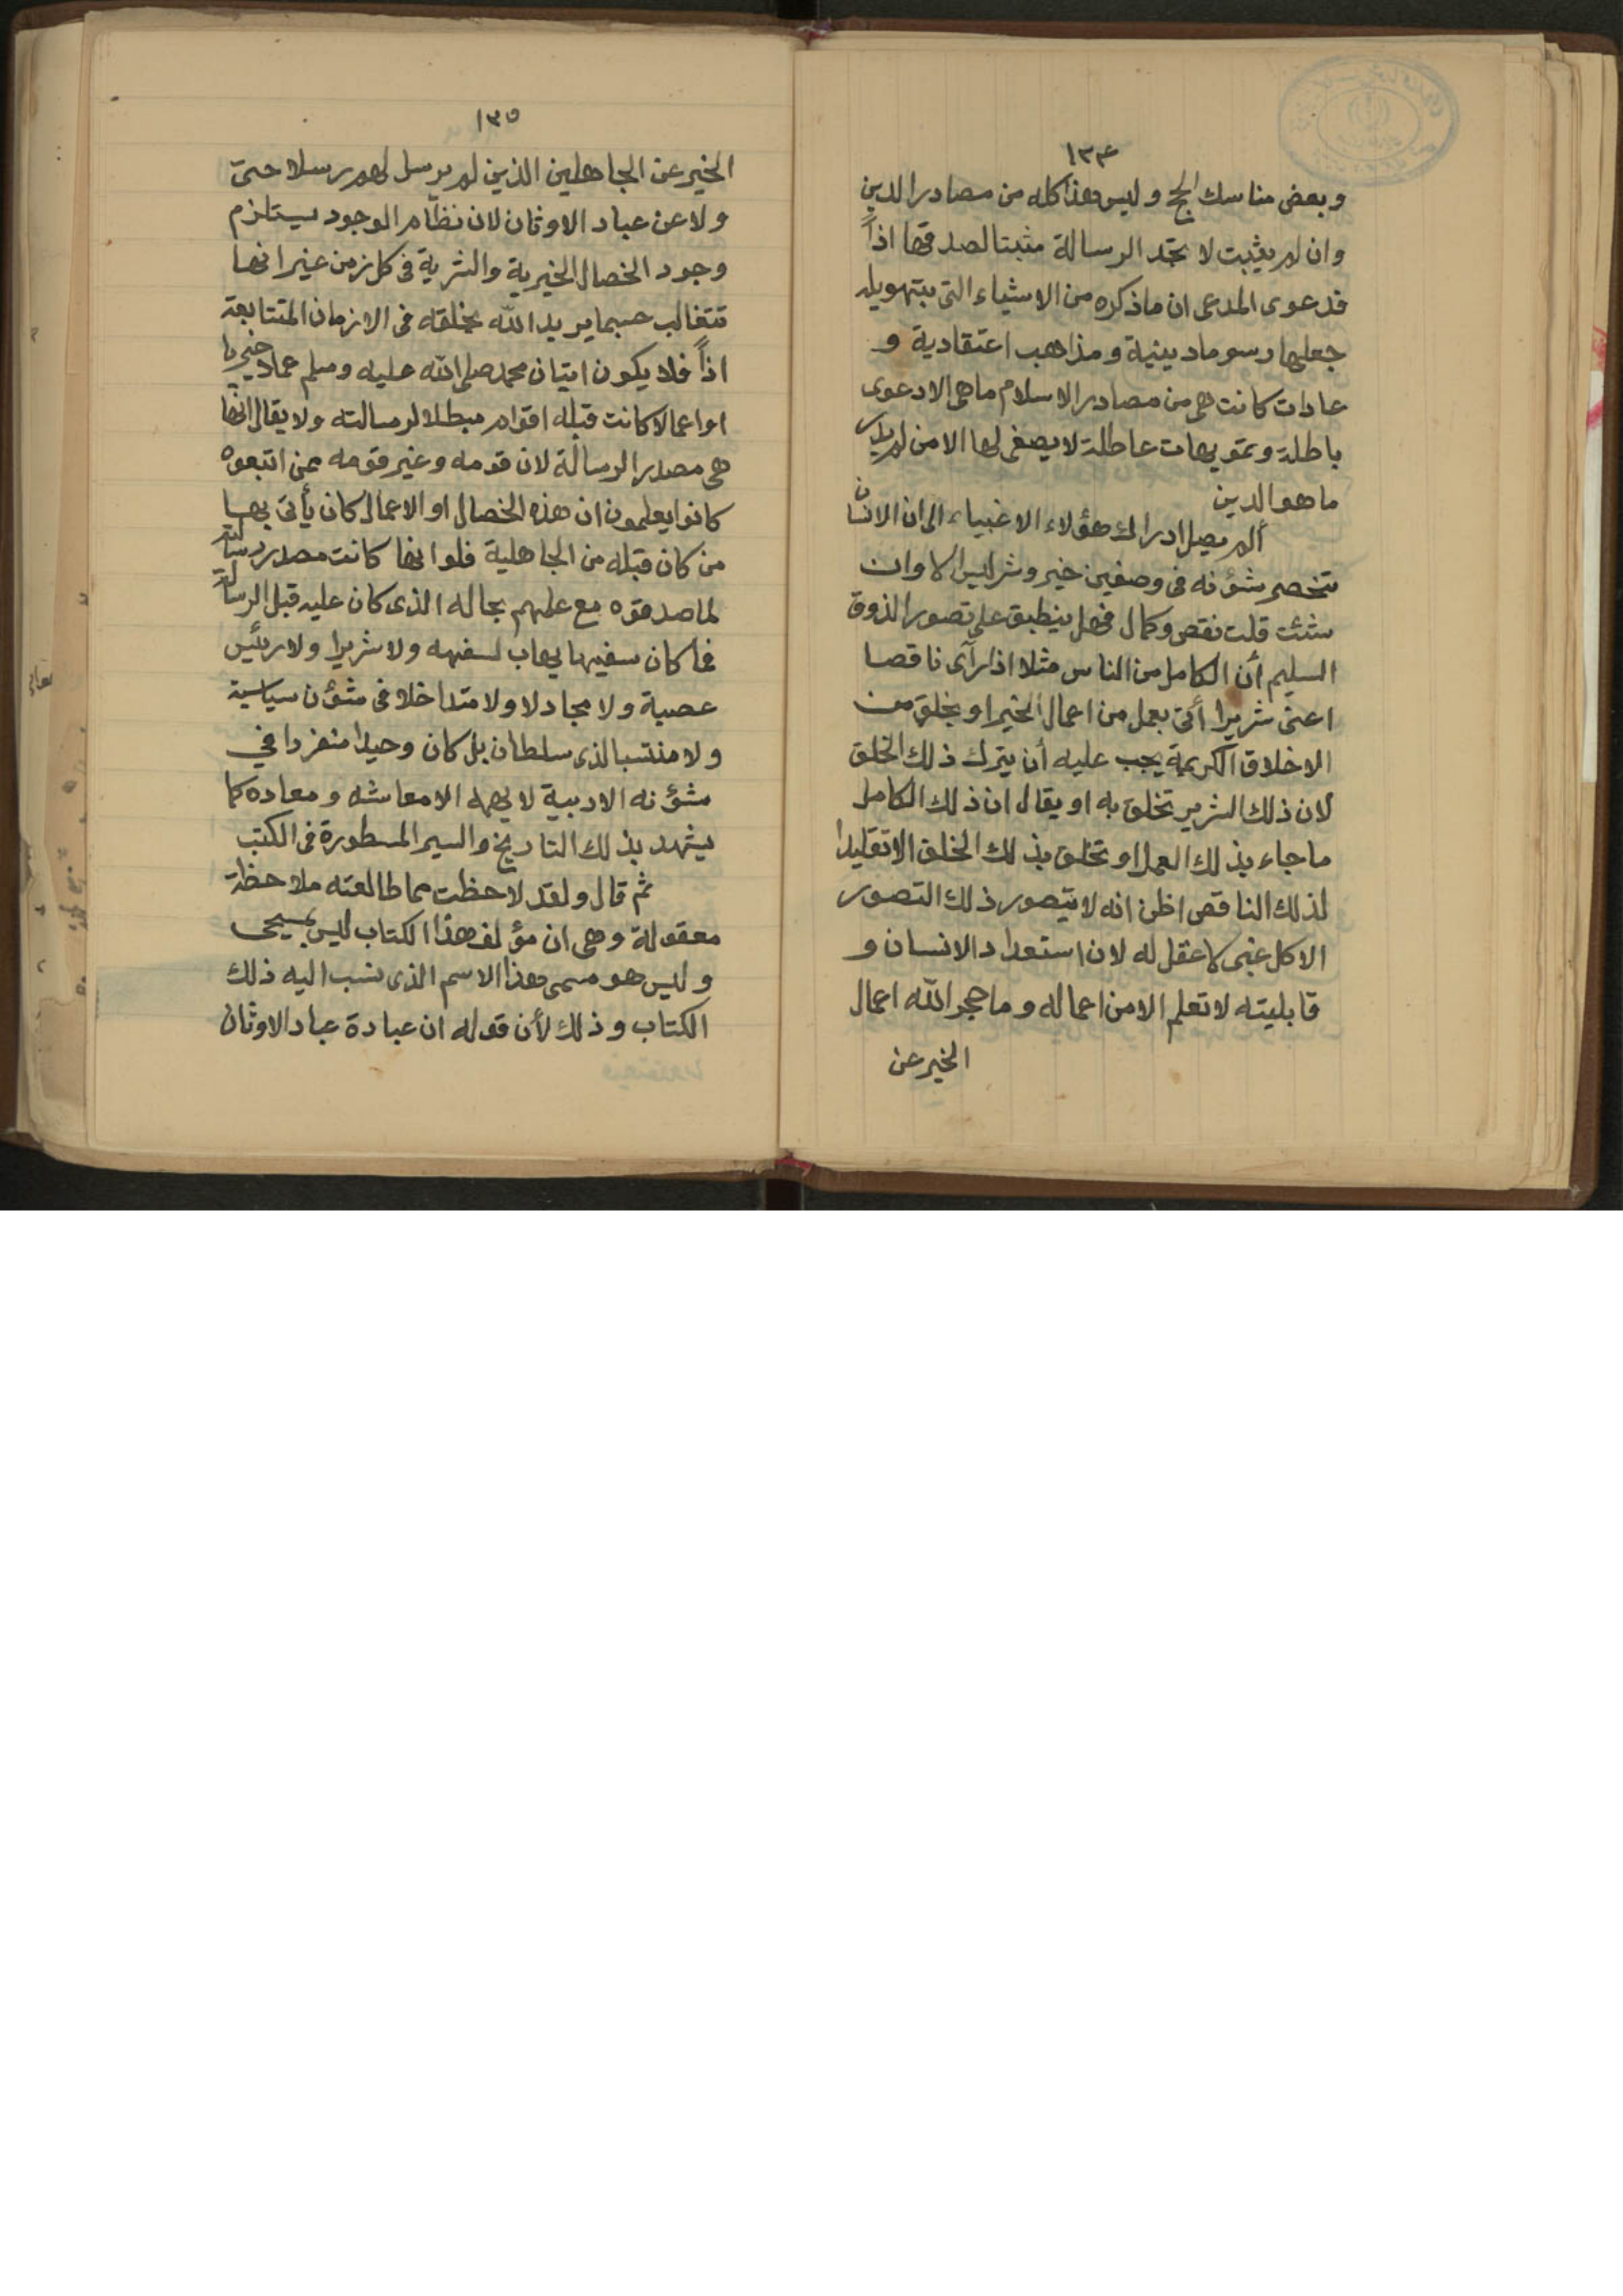 ١٣٤
وبعض مناسك الحج وليس هذا كله من مصادر الدين
وان لم يثبت لا تجد الرسالة مثبتا لصدقها اذاً
فدعوى المدعى ان ما ذكره من الاشياء التى بتهويله
جعلها رسوما دينية ومذاهب اعتقادية و
عادات كانت هى من مصادر الاسلام ما هى الا دعوى
باطلة وتمويهات عاطلة لا يصغى لها الا من لم يدر
ما هو الدين
ألم يصل ادراك هؤلاء الاغبياء الى ان الانسان
تنحصر شؤنه فى وصفين خير وشر ليس الا وان
شئت قلت نقص وكمال فهل ينطبق على تصور الذوق
السليم أن الكامل من الناس مثلا اذا رآى ناقصا
اعنى شريرا أتى بعمل من اعمال الخير او بخلق من
الاخلاق الكريمة يجب عليه أن يترك ذلك الخلق
لان ذلك الشرير تخلق به او يقال ان ذلك الكامل
ما جاء بذلك العمل او تخلق بذلك الخلق الا تقليدا
لذلك الناقص اظن انه لا يتصور ذلك التصور
الا كل غبى لا عقل له لان استعداد الانسان و
قابليته لا تعلم الا من اعماله وما حجر الله اعمال
الخير عن
١٣٥
الخير عن الجاهلين الذين لم يرسل لهم رسلا حتى
ولا عن عباد الاوثان لان نظام الوجود يستلزم
وجود الخصال الخيرية والشرية فى كل زمن غير انها
تتغالب حسبما يريد الله بخلقه فى الازمان المتتابعة
اذاً فلا يكون اتيان محمد صلى الله عليه وسلم عملا خيريا
او اعمالا كانت قبله اقوام مبطلا لرسالته ولا يقال انها
هى مصدر الرسالة لان قومه وغير قومه ممن اتبعوه
كانوا يعلمون ان هذه الخصال او الاعمال كان يأتى بها
من كان قبله من الجاهلية فلو انها كانت مصدر رسالته
لما صدقوه مع علمهم بحاله الذى كان عليه قبل الرسالة
فما كان سفيها يهاب لسفهه ولا شريرا ولا رئيس
عصبة ولا مجادلا ولا متداخلا فى شؤن سياسية
ولا منتسبا لذى سلطان بل كان وحيدا منفردا في
شؤنه الادبية لا يهمه الا معاشه ومعاده كما
يشهد بذلك التاريخ والسير المسطورة فى الكتب
ثم قال ولقد لاحظت مما طالعته ملاحظة
معقولة وهى ان مؤلف هذا الكتاب ليس بمسيحى
وليس هو مسمى هذا الاسم الذى نسب اليه ذلك
الكتاب وذلك لأن قوله ان عبادة عباد الاوثان